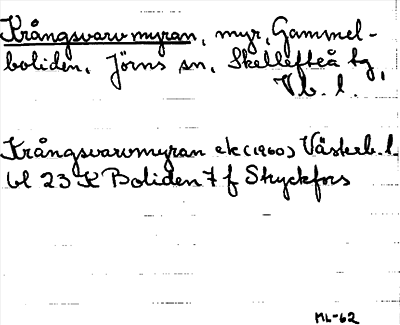 Krångsvarvmyran, myr, Gammel-
boliden, Jörns sn, Skellefteå tg,
Vb. l.
Krångsvarvmyran ek (1960) Västerb. l.
bl 23 K Boliden 7 f Stryckfors
ML-62